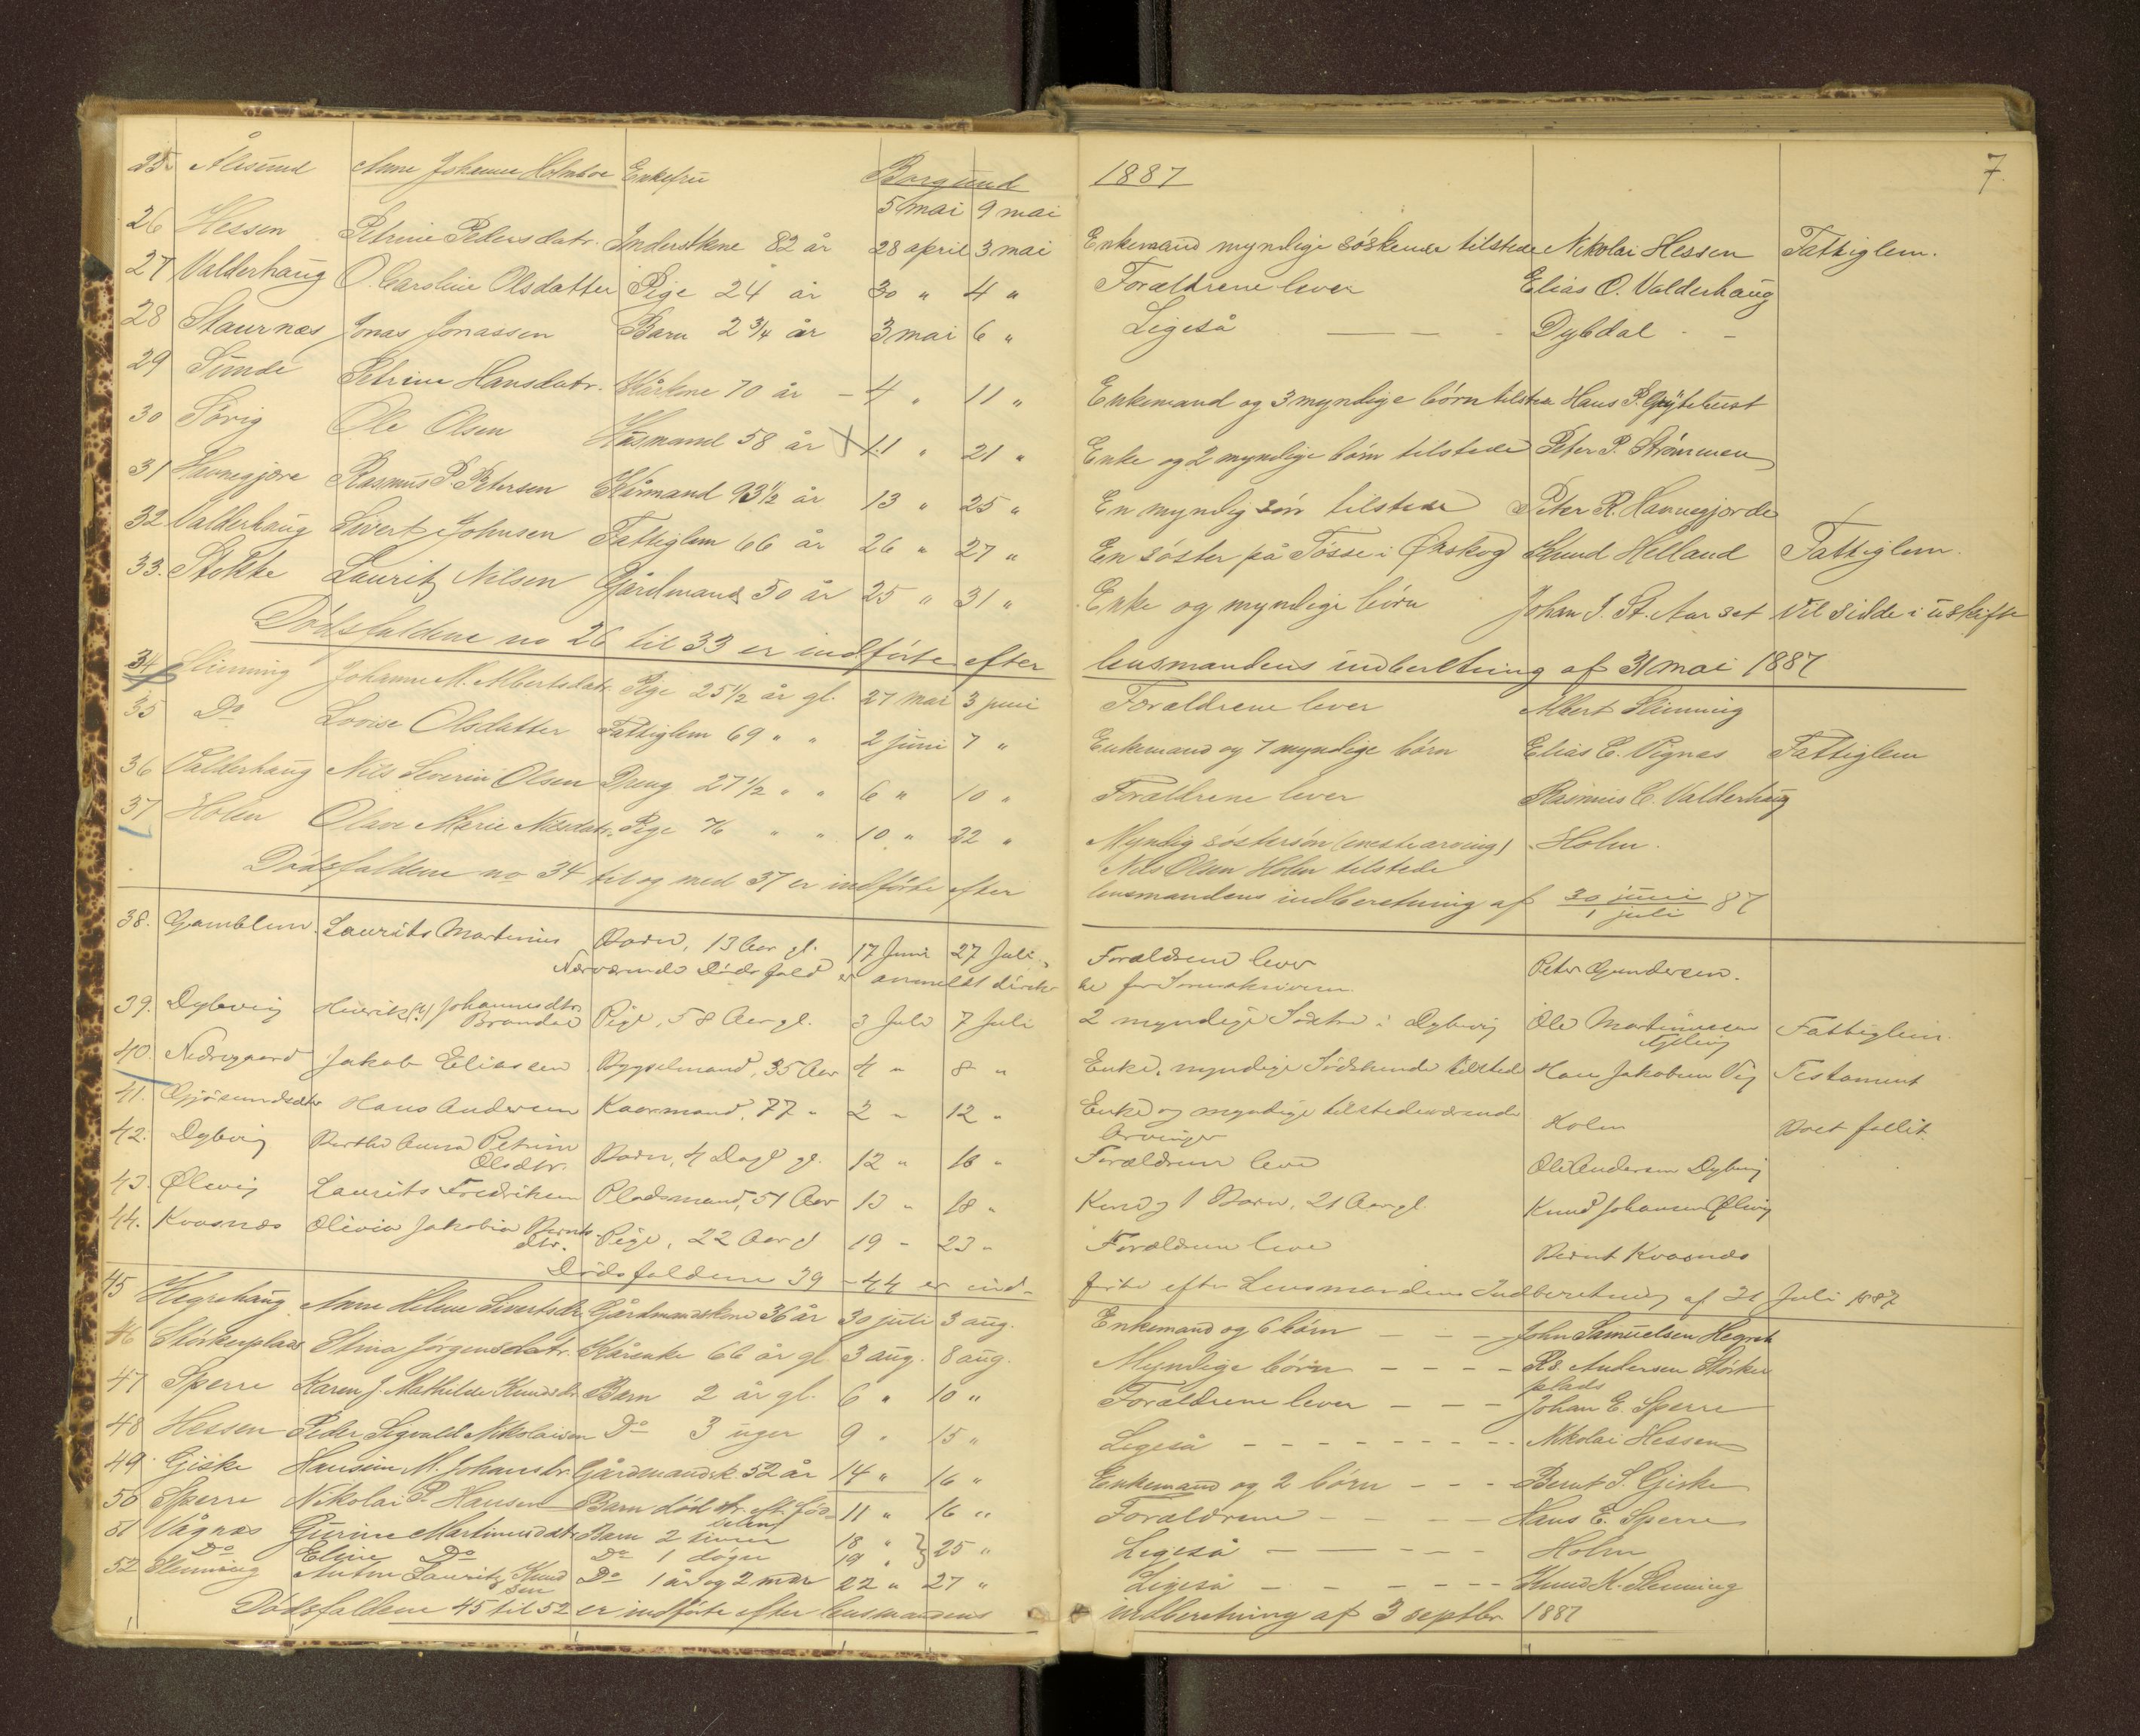 Borgund 1887 7
25. Ålesund Anne Johanne Holmboe Enkefru 5 mai 9 mai
26 Hessen Petrine Pedersdatr. Inderstkone 82 år 28 april 3 mai Enkemand myndige söskende tilstede Nikolai Hessen Fattiglem.
27 Valderhaug O. Caroline Olsdatter Pige 24 år 30 " 4 " Forældrene lever Elias O. Valderhaug
28 Staurnæs Jonas Jonassen Barn 2 3/4 år 3 mai 6 " Ligeså — — - Dybdal - -
29 Sunde Petrine Hansdatr. Kårkone 70 år – 4 " 11 " Enkemand og 3 myndige börn tilstede Hans P.
30 Sörig Ole Olsen Husmand 58 år 11 " 21 " Enke og 2 myndige börn tilstede Peter P. Strømmen
31 Havnegjøre Rasmus P. Petersen Kårmand 93 1/2 år 13 " 25 " En myndig sön tilstede Peter R. Havnegjorde
32 Valderhaug Sivert Johnsen Fattiglem 66 år 26 " 27 " En söster på Tösse i Ørskog Knud Helland Fattiglem.
33. Stokke Lauritz Nilsen Gårdmand 50 år 25 " 31 " Enke og myndige börn Johan J. St. Aarset Vil sidde i uskifte
Dödsfaldene no 26 til 33 er indförte efter lensmandens indberetning af 31 mai 1887
34 Slinning Johanne M. Albertsdatr. Pige 25 1/2 år gl. 27 mai 3 juni Forældrene lever Albert Slinning
35 Do Lovise Olsdatter Fattiglem 69 " " 2 juni 7 " Enkemand og 7 myndige börn Elias C. Vegnes Fattiglem
36 Valderhaug Nils Severin Olsen Dreng 27 1/2 " " 6 " 10 " Forældrene lever Rasmus C. Valderhaug
37 Holen Olave Marie Nilsdatr. Pige 76 " " 10 " 22 " Myndig söstersön (eneste arving) Holm.
Nils Olsen Holen tilstede
Dödsfaldene no 34 til og med 37 er indförte efter lensmandens indberetning af 30 juni / 1 juli 87
38. Gamblem. Laurits Martinius Barn, 13 Aar gl. 17 Juni 27 Juli, Forældrene lever Peter Gundersen.
Nærværende Dödsfald er anmeldt direkte for Sorenskriveren.
39. Dybevig Henrik(?) Johannesdtr. Brandal Pige, 58 Aar gl. 3 Juli 7 Juli 2 myndige Söstre i Dybevig Ole Martinussen Fattiglem.
40. Nedregaard Jakob Eliassen Bygselmand, 35 Aar 4 " 8 " Enke, myndige Södskende tilstede Hans Jakobsen Veg Testament
41. Gjösundsæter Hans Andersen Kaarmand, 77 " 2 " 12 " Enke og myndige tilstedeværende Arvinger Holm Boet fallit.
42. Dybvig Berthe Anna Petrine Olsdtr. Barn, 4 Dage gl. 12 " 16 " Forældrene leve Ole Andersen Dybvig
43. Ølevig Laurits Fredriksen Pladsmand, 51 Aar 13 " 18 " Kone og 1 Barn, 21 Aar gl. Knud Johansen Ølevig
44. Kvasnæs Olivia Jakobia Berntsdtr. Pige, 22 Aar gl 19 " 23 " Forældrene leve Bernt Kvasnæs
Dödsfaldene 39 – 44 er indförte efter Lensmandens Indberetning af 31 Juli 1887
45 Hegrehaug Anne Helene Sivertsdtr. Gårdmandskone 36 år 30 juli 3 aug. Enkemand og 6 börn – – – John Samuelsen Hegreh
46 Störkenplads Stina Jörgensdatr. Kårenke 66 år gl 3 aug. 8 aug. Myndige börn – – – – Rs. Andersen Störkenplads
47 Sperre Karen J. Mathilde Knudsdtr. Barn 2 år gl. 6 " 10 " Forældrene lever – – – Johan E. Sperre
48 Hessen Peder Sigvald Nikolaisen Do 3 uger 9 " 15 " Ligeså – – – – – – – Nikolai Hessen
49 Giske Hansine M. Johansdtr. Gårdmandsk. 52 år 14 " 16 " Enkemand og 2 börn – – – Bernt S. Giske
50 Sperre Nikolai P. Hansen Barn död str. eft. födselen 11 " 16 " Forældrene – – – – Hans E. Sperre
51 Vågnæs Gurine Martinusdatr Barn 2 timer 18 " } 25 " Ligeså – – – – Holm
Do Eline Do Do 1 dögn 19 "
52 Slinning Anton Lauritz Knudsen Do 1 år og 2 mdr 22 " 27 " Ligeså – – – – – Knud K. Slinning
Dödsfaldene 45 til 52 er indförte efter lensmandens indberetning af 3 septbr 1887